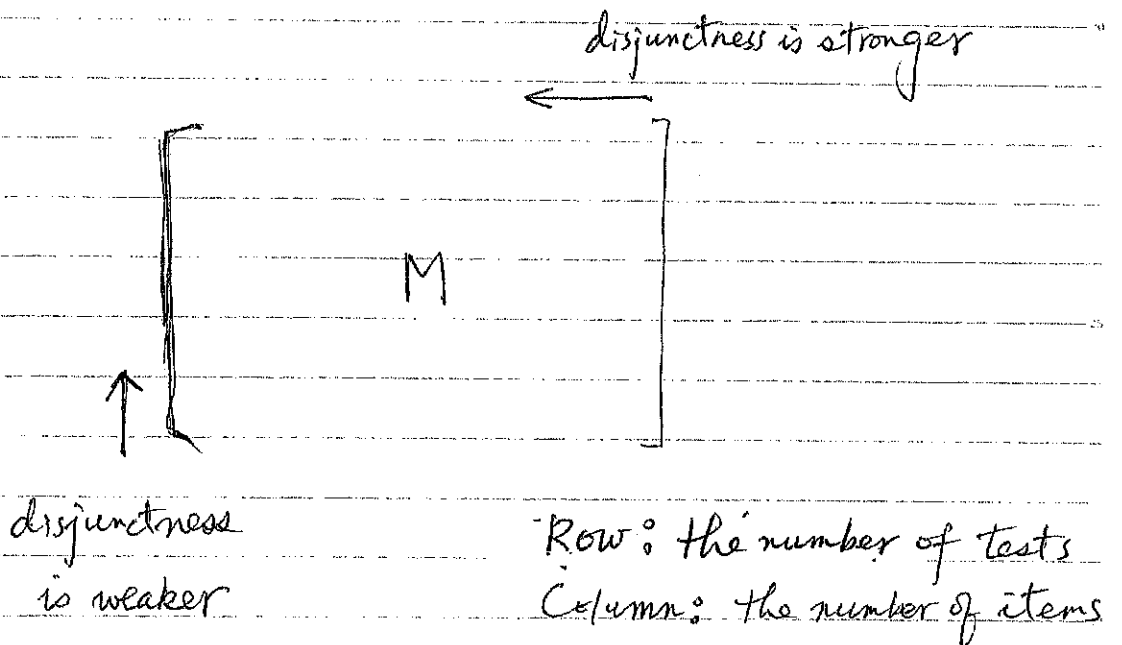 disjunctness is stronger
M
disjunctness
is weaker
Row: the number of tests
Column: the number of items